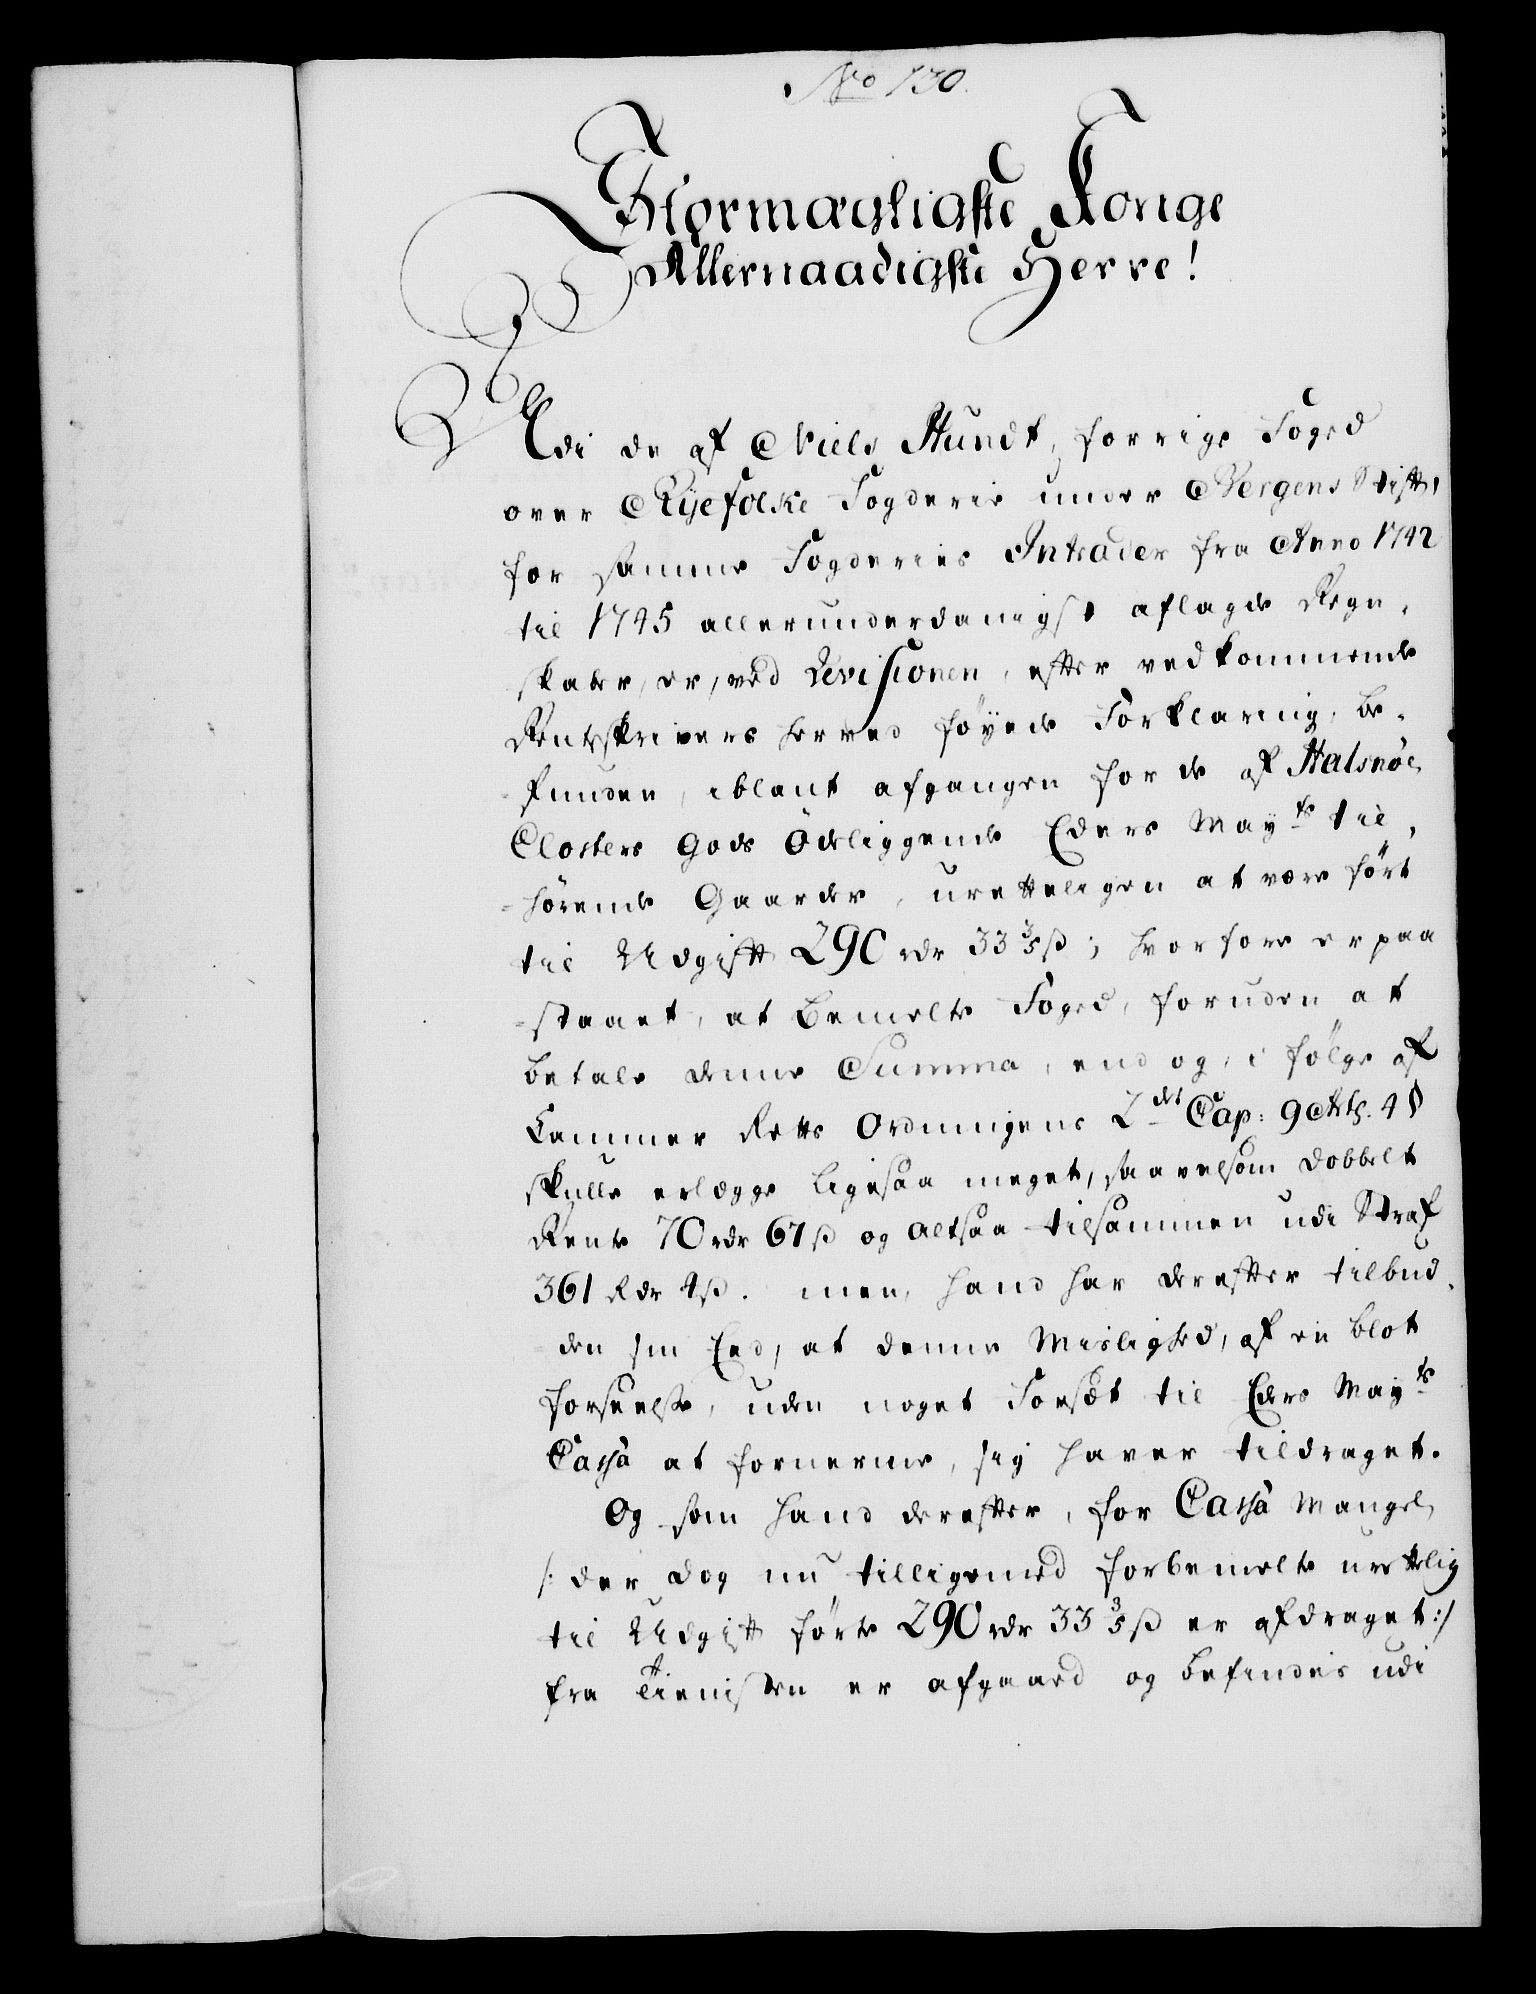 No 130.
Stormægtigste Konge
Allernaadigste Herre!
Udi de af Niels Hundt, forrige Foged
over Ryefolke Fogderie under Bergens Stift,
for samme Fogderies Intrader fra Anno 1742
til 1745 allerunderdanigst aflagde Regn-
skaber, er, ved Revisionen, efter vedkommende
Renteskrivers herved føyede Forklaring, be-
funden, iblant afgangen for de af Halsnöe
Closters Gods Ödeliggende Eders Mayts til-
hörende Gaarder, uretteligen at være fört
til Udgift 290 rdr 33 3/5 ß; hvorfore er paa
staaet, at bemelte Foged, foruden at
betale denne Summa, end og, i fölge af
Cammer Retts Ordningens 2det Cap: 9 Art. 4 §
skulle erlægge ligesaa meget, saavelsom dobbelt
Rente 70 rdr 67 ß og altsaa tilsammen udi Straf
361 Rdr 4 ß. men, hand har derefter tilbud-
den sin Eed, at denne Mislighed, af en blot
forseelse, uden noget Forsæt til Eders Mayts
Cassa at fornerme, sig haver tildraget.
Og som hand derefter, for Cassa Mangel
/: der dog nu tilligemed forbemelte urettelig
til Udgift förte 290 rdr 33 3/5 ß er afdraget :/
fra Tienisten er afgaaed og befindes udi